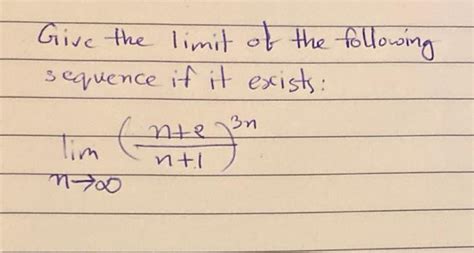 Give the limit of the following
sequence if it exists:
lim n→∞ ((n+2)/(n+1))^3n